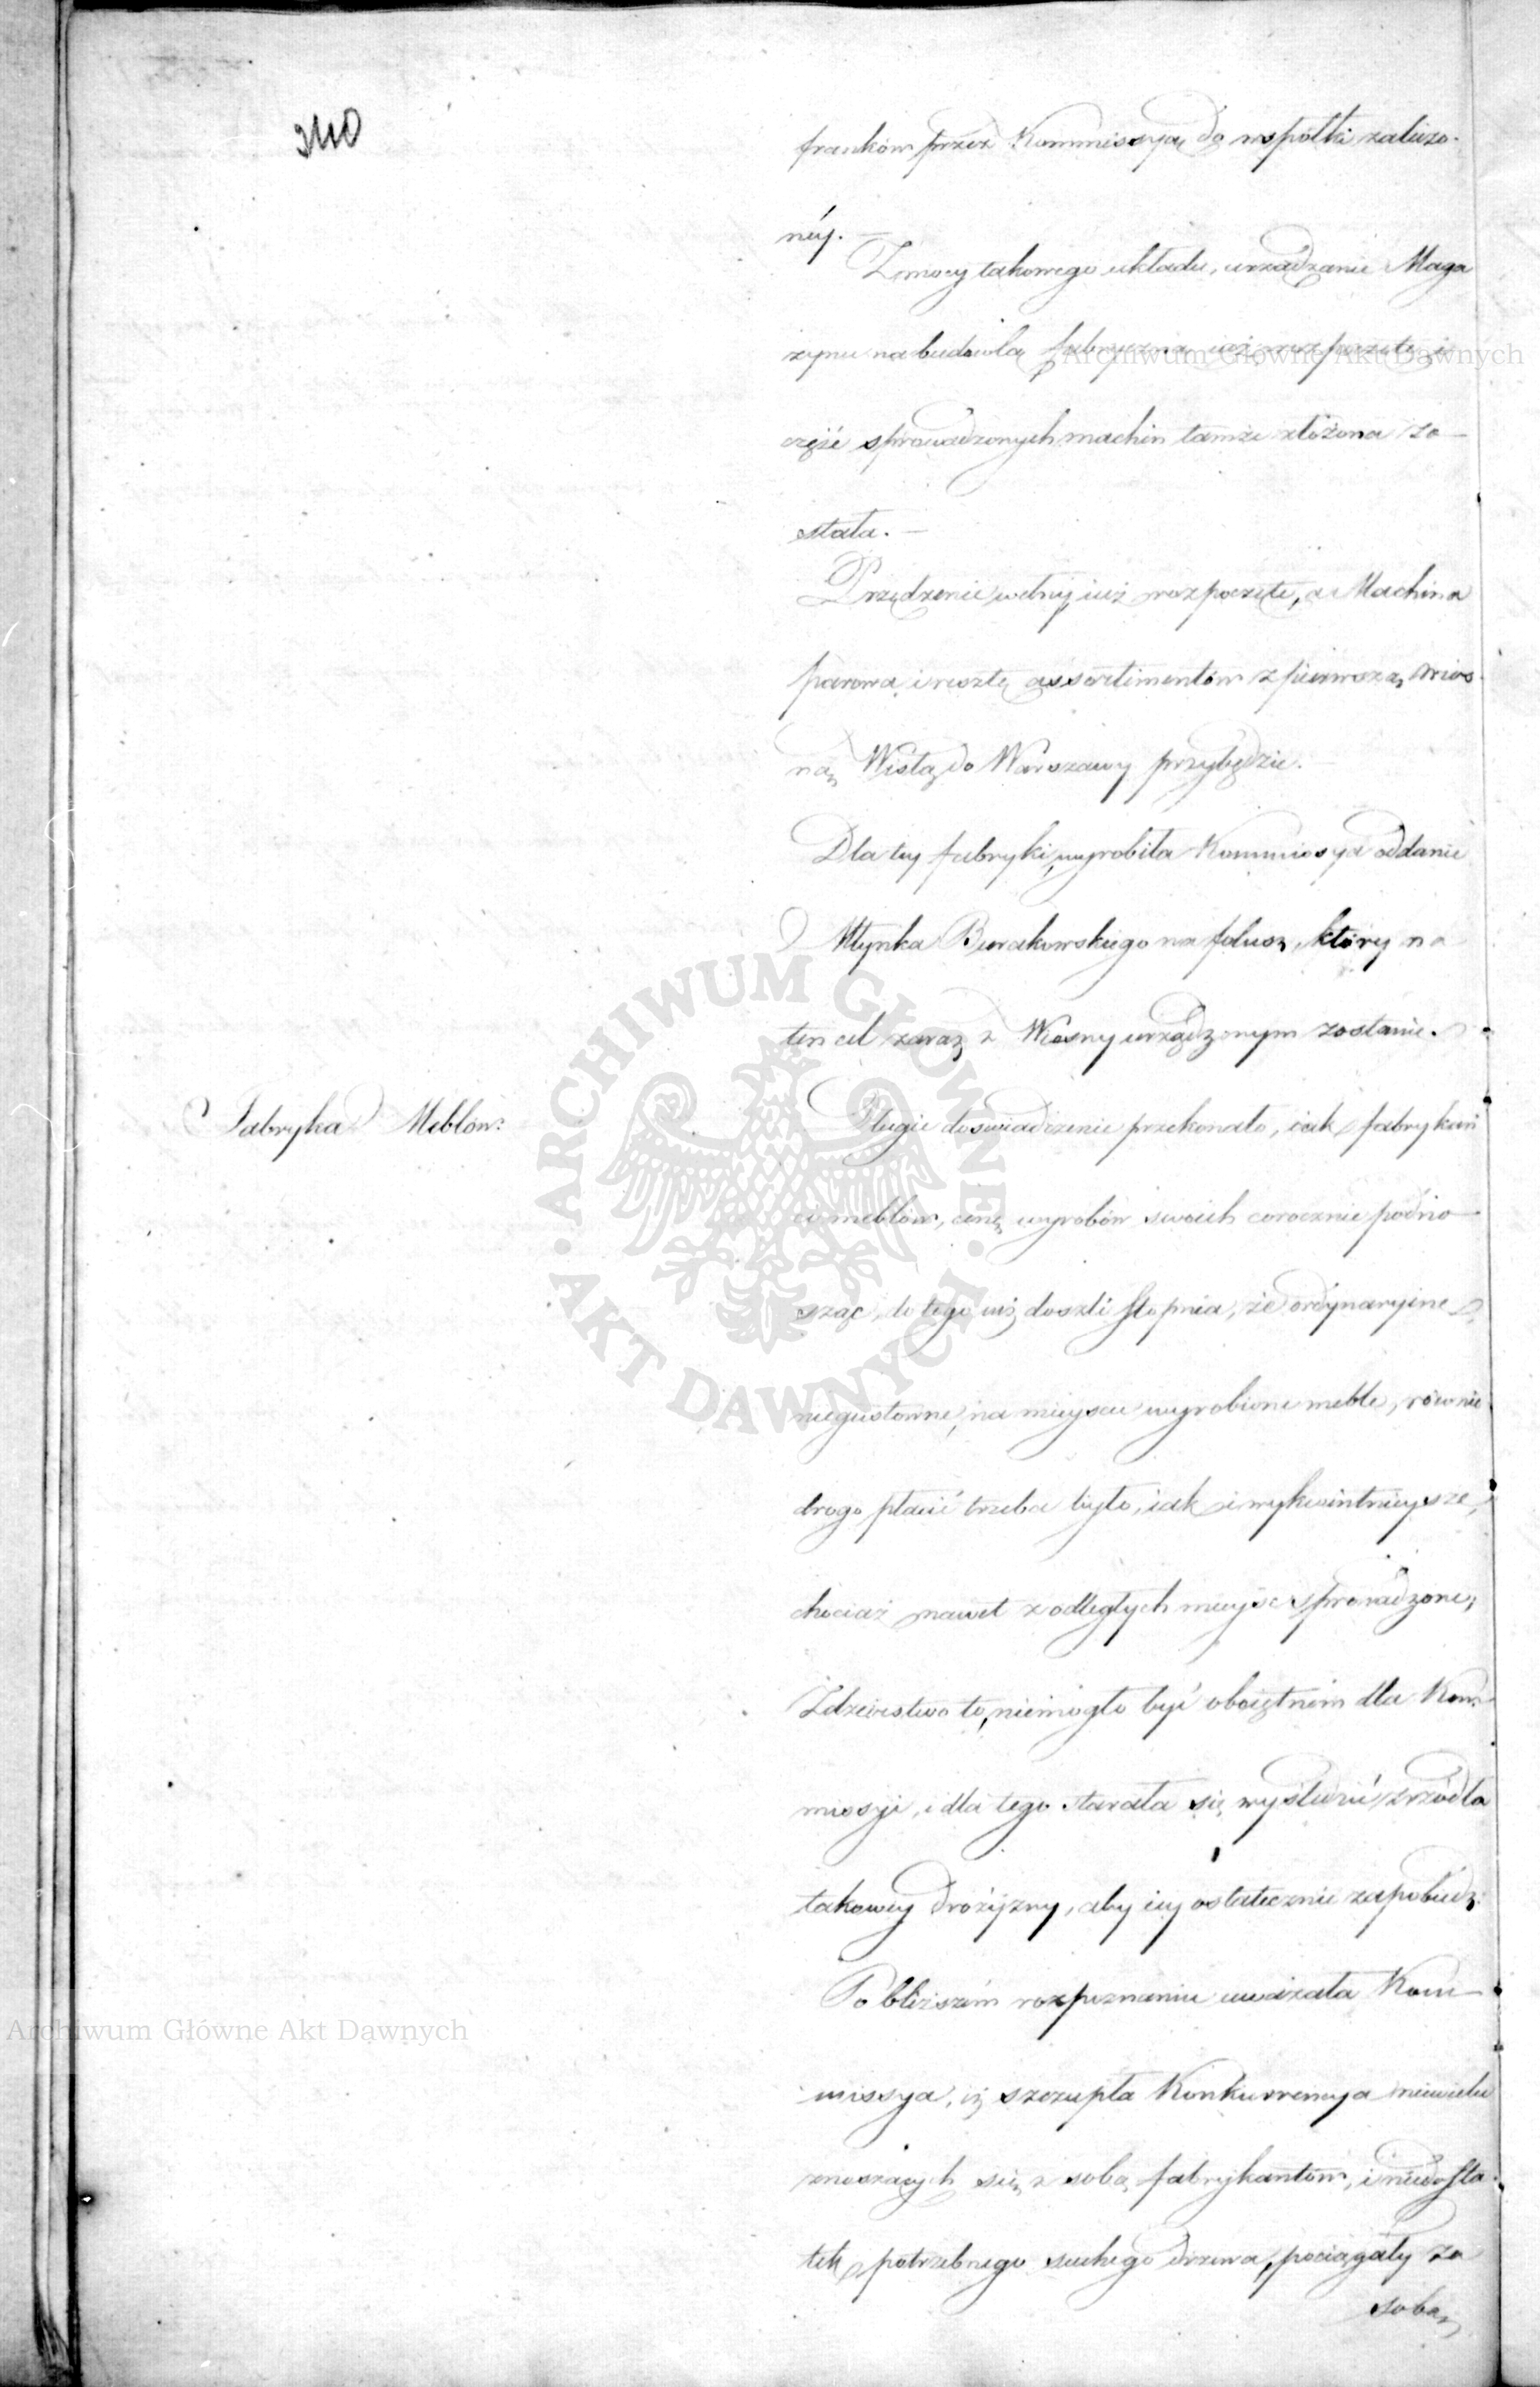 340
franków przez Kommissyą do wspólki zaliczo-
néy. —
Z mocy takowego układu, urządzanie Maga
zynu na budowlą fabryczną iuż rozpoczęte, i
część sprowadzonych machin tamże złożona zo—
stała. —
Przędzenie wełny iuż rozpoczęte, a Machina
parowa i resztę assortimentów z pierwszą wios-
ną Wisłą do Warszawy przybędzie.
Dla tey fabryki, wyrobiła Kommissya oddanie
Młynka Burakowskiego na folusz, który na
ten cel zaraz z Wiosny urządzonym zostanie.
Fabryka Meblów.
Długie doswiadczenie przekonało, iak fabrykan
ci meblów, cenę wyrobów swoich corocznie podno—
sząc, do tego iuż doszli stopnia, że ordynaryine
niegustowne, na mieyscu wyrobione meble, równie
drogo płacić trzeba było, iak i wykwintnieysze,
chociaż nawet z odległych mieysc sprowadzone;
Zdzierstwo to, niemogło być oboiętném dla Kom-
missyi, i dla tego starała się wyśledzić zrzódła
takowey drożyzny, aby iey ostatecznie zapobiedz.
Po bliższém rozpoznaniu uważała Kom—
missya, iż szczupła Konkurrencya niewielu
znoszących się z sobą fabrykantów, i niedosta-
tek potrzebnego suchego drzewa, pociągały za
sobą
Archiwum Główne Akt Dawnych
Archiwum Główne Akt Dawnych
ARCHIWUM GŁÓWNE
AKT DAWNYCH